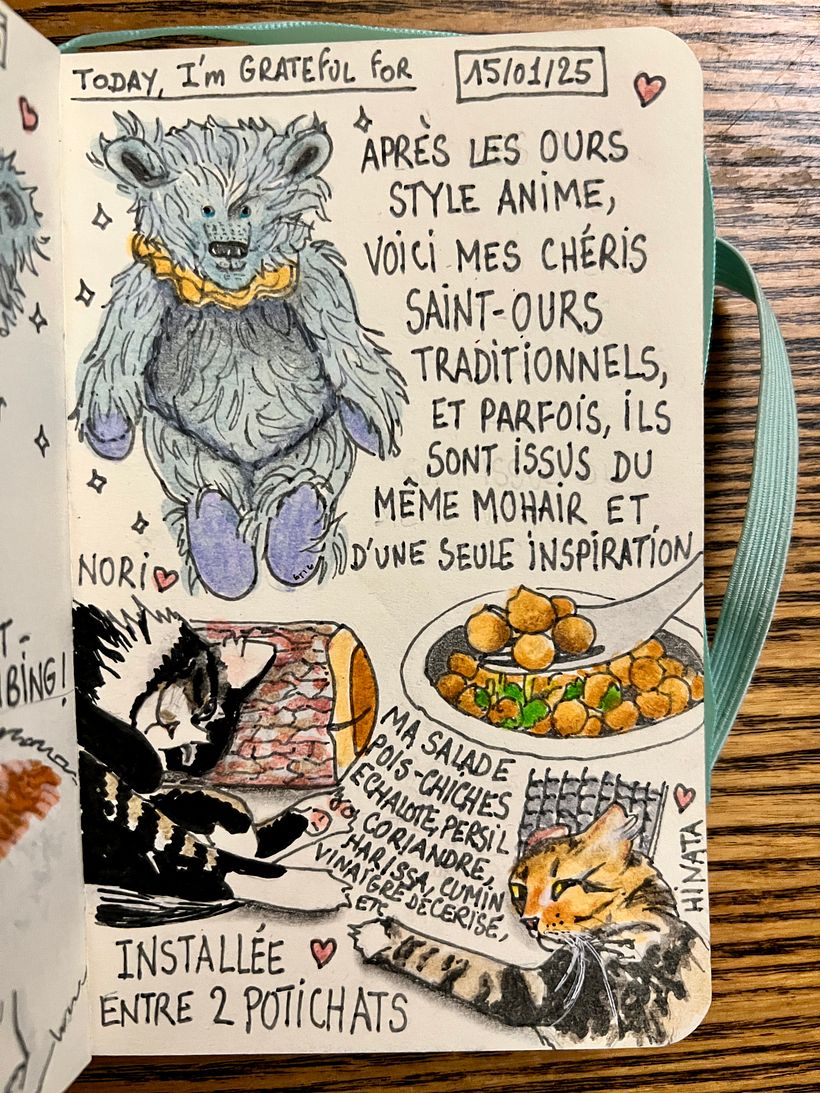 TODAY, I'm GRATEFUL FOR
15/01/25
APRÈS LES OURS
STYLE ANIME,
VOICI MES CHÉRIS
SAINT-OURS
TRADITIONNELS,
ET PARFOIS, ILS
SONT ISSUS DU
MÊME MOHAIR ET
D'UNE SEULE INSPIRATION
NORI
MA SALADE
POIS-CHICHES
ECHALOTE, PERSIL
CORIANDRE,
HARISSA, CUMIN
VINAIGRE DE CERISE,
ETC
HINATA
INSTALLÉE
ENTRE 2 POTICHATS
T-
BING!